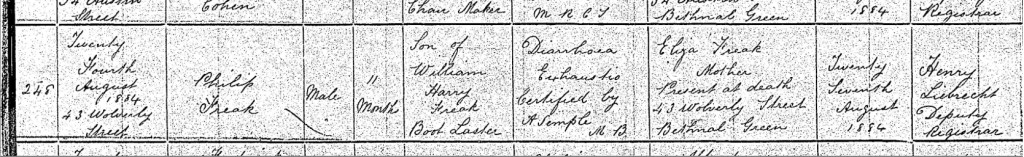 Street
Cohen
Chair Maker
M R C S
Bethnal Green
1884
Registrar
248
Twenty
Fourth
August
1884
43 Wolverly
Street
Philip
Freak
Male
11
Month
Son of
William
Harry
Freak
Boot Laster
Diarrhoea
Exhaustio
Certified by
A Temple
M B
Eliza Freak
Mother
Present at death
43 Wolverly Street
Bethnal Green
Twenty
Seventh
August
1884
Henry
Librecht
Deputy
Registrar